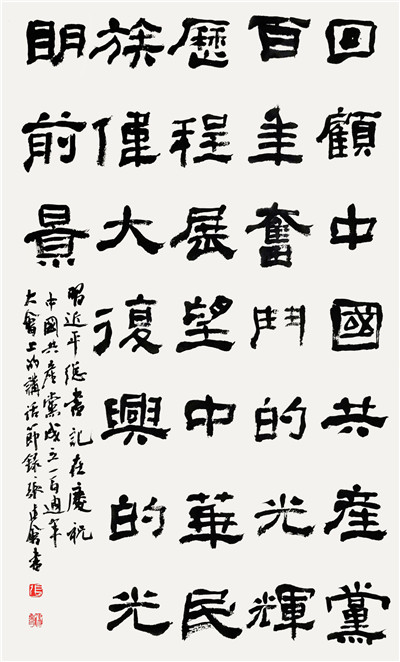 回顧中國共産黨
百年奮鬥的光輝
歷程展望中華民
族偉大復興的光
明前景
習近平總書記在慶祝
中國共産黨成立一百週年
大會上的講話節錄張建會書